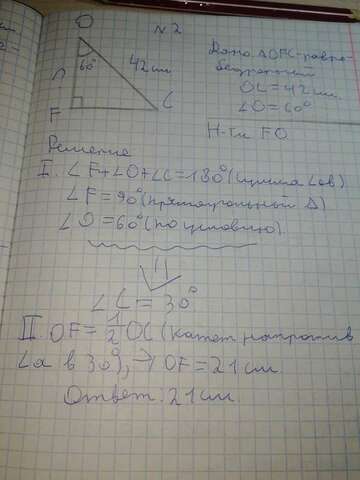 N 2
O
60°
42 см
F
C
Дано: ΔOFC - равно-
бедренный
OC = 42 см.
∠O = 60°
Н-ти FO.
Решение
I. ∠F+∠O+∠C=180° (сумма ∠ов)
∠F = 90° (прямоугольный Δ)
∠O = 60° (по условию)
∠C = 30°
II OF = 1/2 OC (катет напротив
∠а в 30°), → OF = 21 см.
Ответ: 21 см.